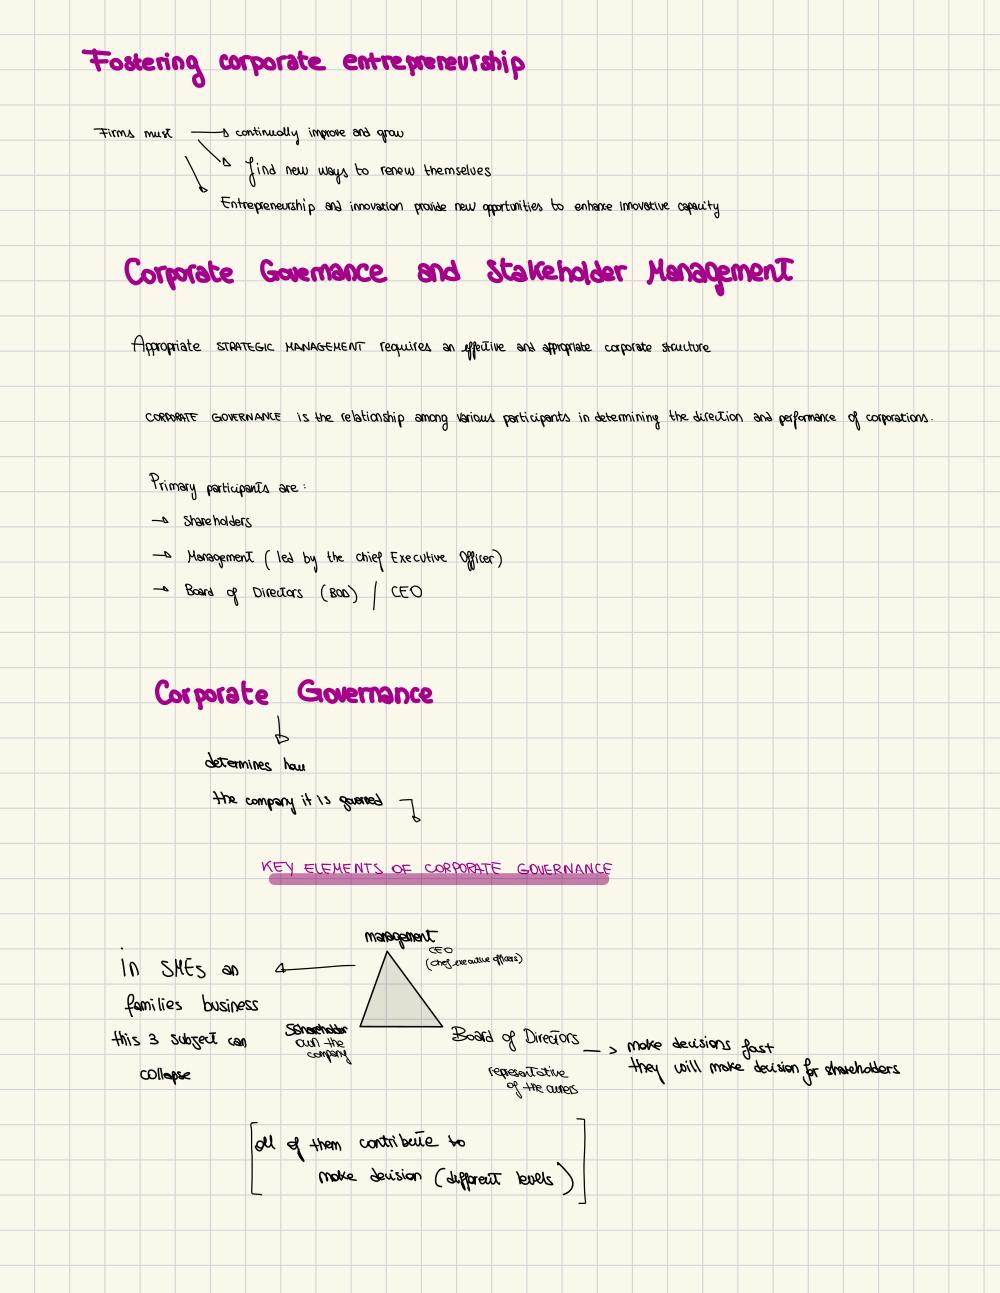 Fostering corporate entrepreneurship
Firms must → continually improve and grow
→ find new ways to renew themselves
→ Entrepreneurship and innovation provide new opportunities to enhance innovative capacity
Corporate Governance and Stakeholder Management
Appropriate STRATEGIC MANAGEMENT requires an effective and appropriate corporate structure
CORPORATE GOVERNANCE is the relationship among various participants in determining the direction and performance of corporations.
Primary participants are:
→ Shareholders
→ Management (led by the chief Executive Officer)
→ Board of Directors (BOD) / CEO
Corporate Governance
determines how
the company it is governed
KEY ELEMENTS OF CORPORATE GOVERNANCE
management
CEO
(chief executive officers)
in SMEs an
families business
this 3 subject can
collapse
Shareholder
own the
company
Board of Directors
representative
of the owners
→ make decisions fast
they will make decision for shareholders
[all of them contribute to
make decision (different levels)]